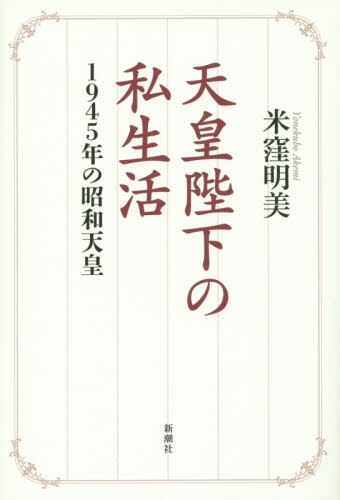 米窪明美
Yonekubo Akemi
天皇陛下の
私生活
1945年の昭和天皇
新潮社